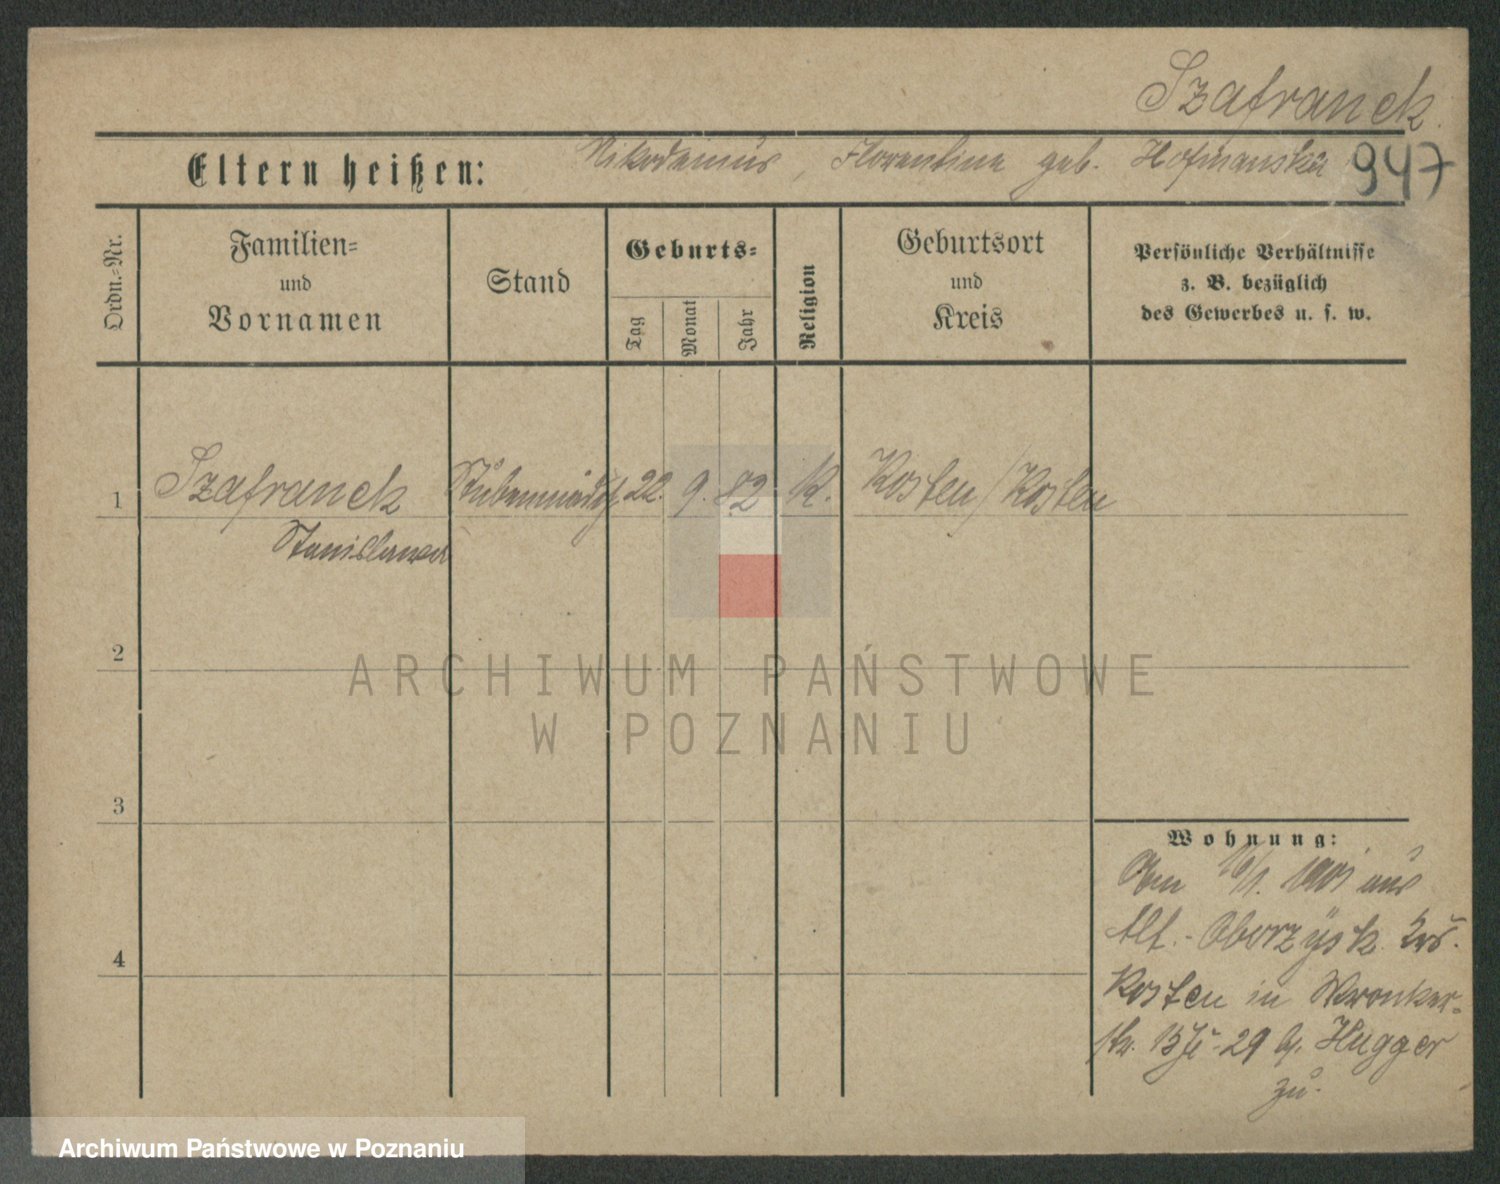 Szafranek
Eltern heißen: Nikodemus, Florentine geb. Hofmanska 947
Ordn.-Nr.
Familien-
und
Vornamen
Stand
Geburts-
Tag
Monat
Jahr
Religion
Geburtsort
und
Kreis
Persönliche Verhältnisse
z. B. bezüglich
des Gewerbes u. s. w.
1 Szafranek Stubenmädch 22. 9. 82 K. Kosten/Kosten
Stanislawa
2
3
4
Wohnung:
Am 16/1. 1901 aus
Alt.-Oborzysk Krs.
Kosten in Wronker-
str. 29 b. Hugger
zu.
ARCHIWUM PAŃSTWOWE
W POZNANIU
Archiwum Państwowe w Poznaniu